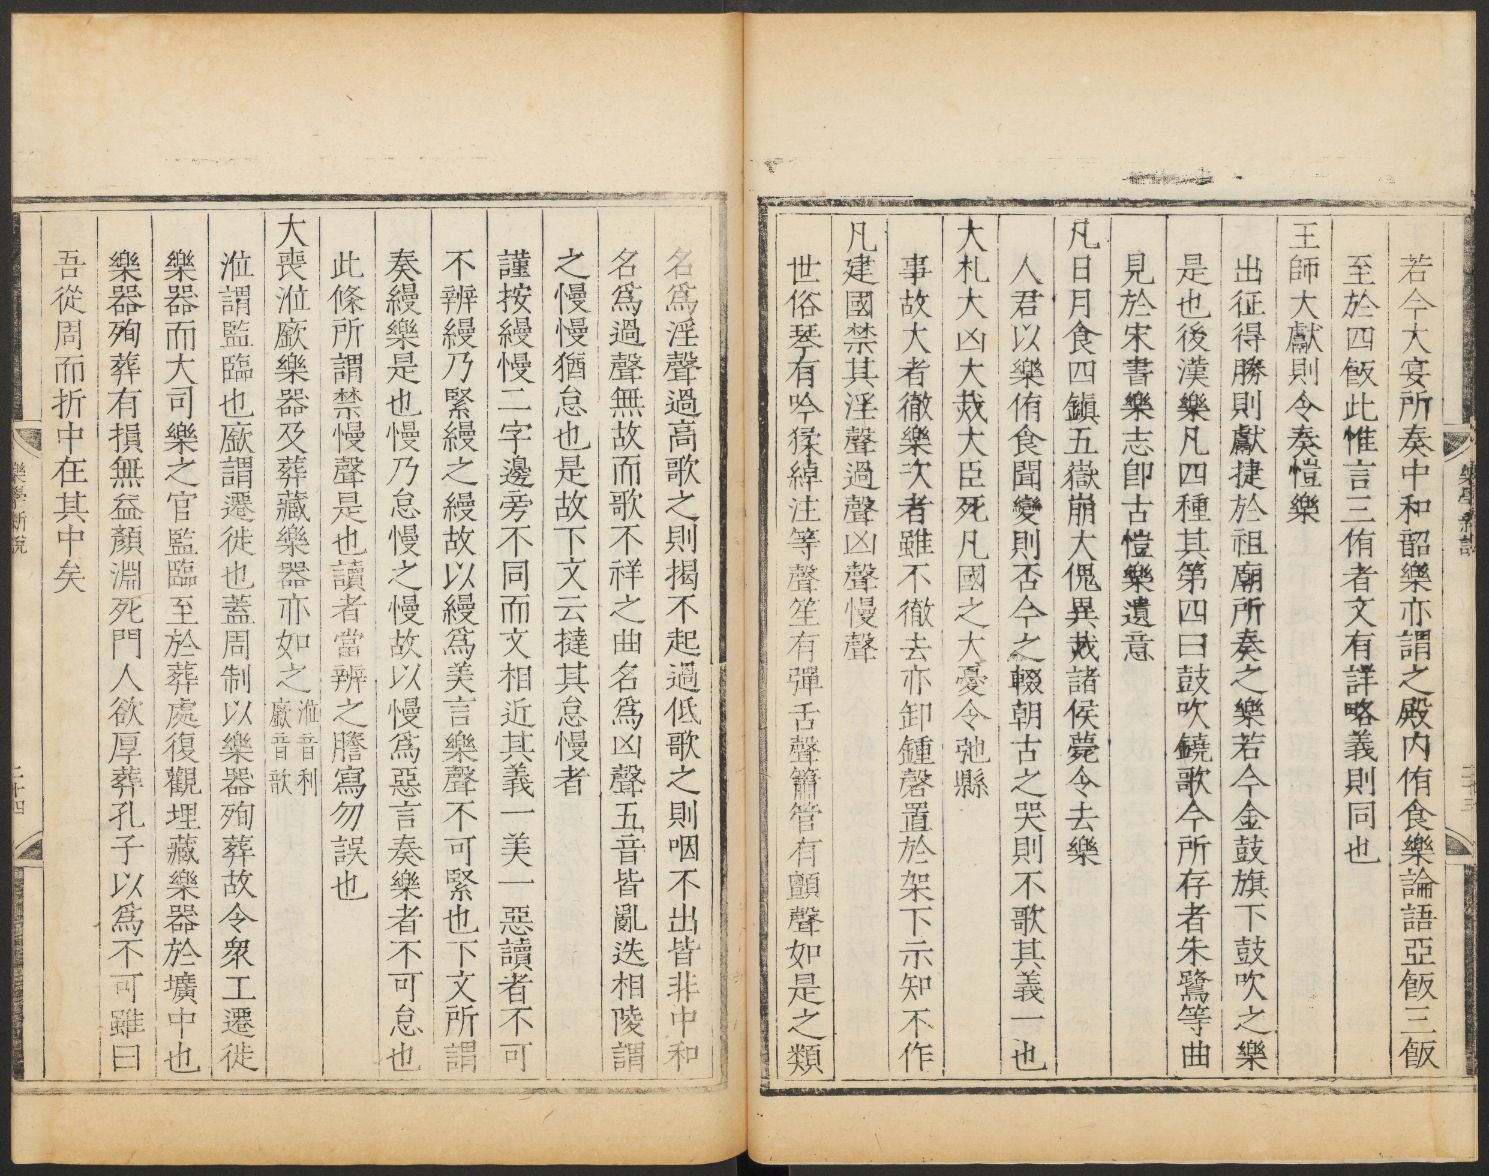 若今大宴所奏中和韶樂亦謂之殿內侑食樂論語亞飯三飯
至於四飯此惟言三侑者文有詳略義則同也
王師大獻則令奏愷樂
出征得勝則獻捷於祖廟所奏之樂若今金鼓旗下鼓吹之樂
是也後漢樂凡四種其第四曰鼓吹鐃歌今所存者朱鷺等曲
見於宋書樂志卽古愷樂遺意
凡日月食四鎮五嶽崩大傀異烖諸侯薨令去樂
人君以樂侑食聞變則否今之輟朝古之哭則不歌其義一也
大札大凶大烖大臣死凡國之大憂令弛縣
事故大者徹樂次者雖不徹去亦卸鍾磬置於架下示知不作
凡建國禁其淫聲過聲凶聲慢聲
世俗琴有吟猱綽注等聲笙有彈舌聲簫管有顫聲如是之類
名爲淫聲過高歌之則揭不起過低歌之則咽不出皆非中和
名爲過聲無故而歌不祥之曲名爲凶聲五音皆亂迭相陵謂
之慢慢猶怠也是故下文云撻其怠慢者
謹按縵慢二字邊旁不同而文相近其義一美一惡讀者不可
不辨縵乃緊縵之縵故以縵爲美言樂聲不可緊也下文所謂
奏縵樂是也慢乃怠慢之慢故以慢爲惡言奏樂者不可怠也
此條所謂禁慢聲是也讀者當辨之謄寫勿誤也
大喪涖廞樂器及葬藏樂器亦如之涖音利廞音歆
涖謂監臨也廞謂遷徙也蓋周制以樂器殉葬故令衆工遷徙
樂器而大司樂之官監臨至於葬處復觀埋藏樂器於壙中也
樂器殉葬有損無益顏淵死門人欲厚葬孔子以爲不可雖曰
吾從周而折中在其中矣
樂學新說
二十三
樂學新說
二十四